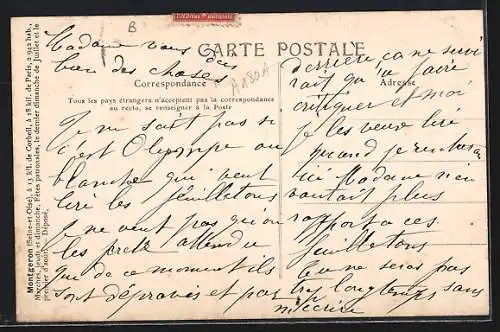 B
A 180 A
CARTE POSTALE
Correspondance
Adresse
Tous les pays étrangers n'acceptent pas la correspondance
au recto, se renseigner à la Poste
Montgeron (Seine-et-Oise), à 13 kil. de Corbeil, à 18 kil. de Paris, 2 942 hab.
Marchés jeudi et dimanche, Fêtes patronales, le dernier dimanche de Juillet et le
premier d'août. Déposé.
Madame vous dis
bien des choses
Je ne sait pas si
c'est Olympe ou
blanche qui veut
liré les feuilletons
Je ne veut pas qu'on
les prete attendu
que de ce moment ils
sont dépravés et par
derrière ça ne servi
rait qu'a faire
critiquer et moi
je les veux liré
quand je rentrerai
ici Madame n'en
voulait plus
rapport a ces
feuilletons
ne serai pas
longtemps sans
m'écrire